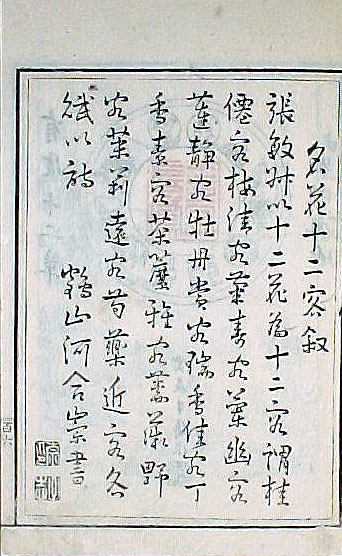 名花十二客叙
張敏叔以十二花為十二客謂桂
僊客梅清客菊寿客蘭幽客
蓮静客牡丹賞客瑞香佳客丁
香素客荼蘼雅客薔薇野
客茉莉遠客芍藥近客各
賦以詩
鶴山河合崇書